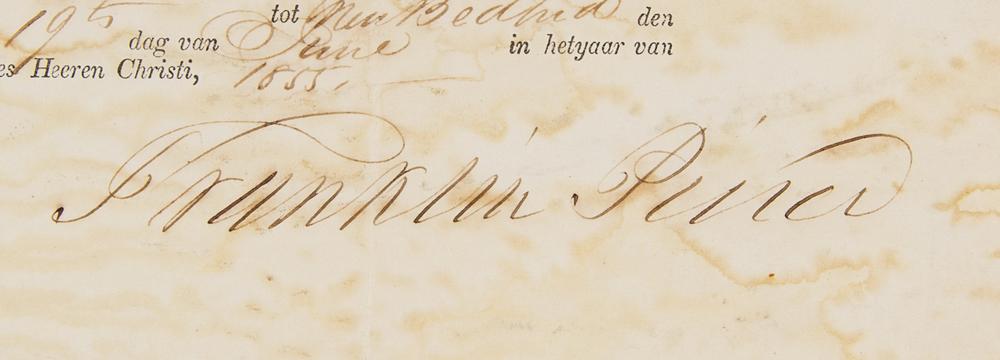 tot New Bedford den
19th dag van June in hetyaar van
es Heeren Christi, 1855.
Franklin Pierce